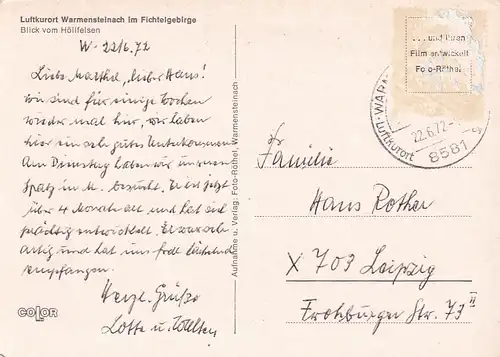 Luftkurort Warmensteinach im Fichtelgebirge
Blick vom Höllfelsen
W. 22/6.72
Liebe Marthel, lieber Hans!
Wir sind für einige Wochen
wieder mal hier, wir haben
hier ein sehr gutes Unterkommen.
Am Dienstag haben wir unseren
Spatz in M. besucht. Er ist jetzt
über 4 Monate alt und hat sich
prächtig entwickelt. Er war sehr
artig und hat uns froh lächelnd
empfangen.
Herzl. Grüße
Lotte u. Walter
COLOR
Aufnahme u. Verlag: Foto-Röthel, Warmensteinach
... und Ihren
Film entwickelt
Foto-Röthel
Luftkurort
22.6.72
8581
Familie
Hans Rother
X 703 Leipzig
Frohburger Str. 73 II